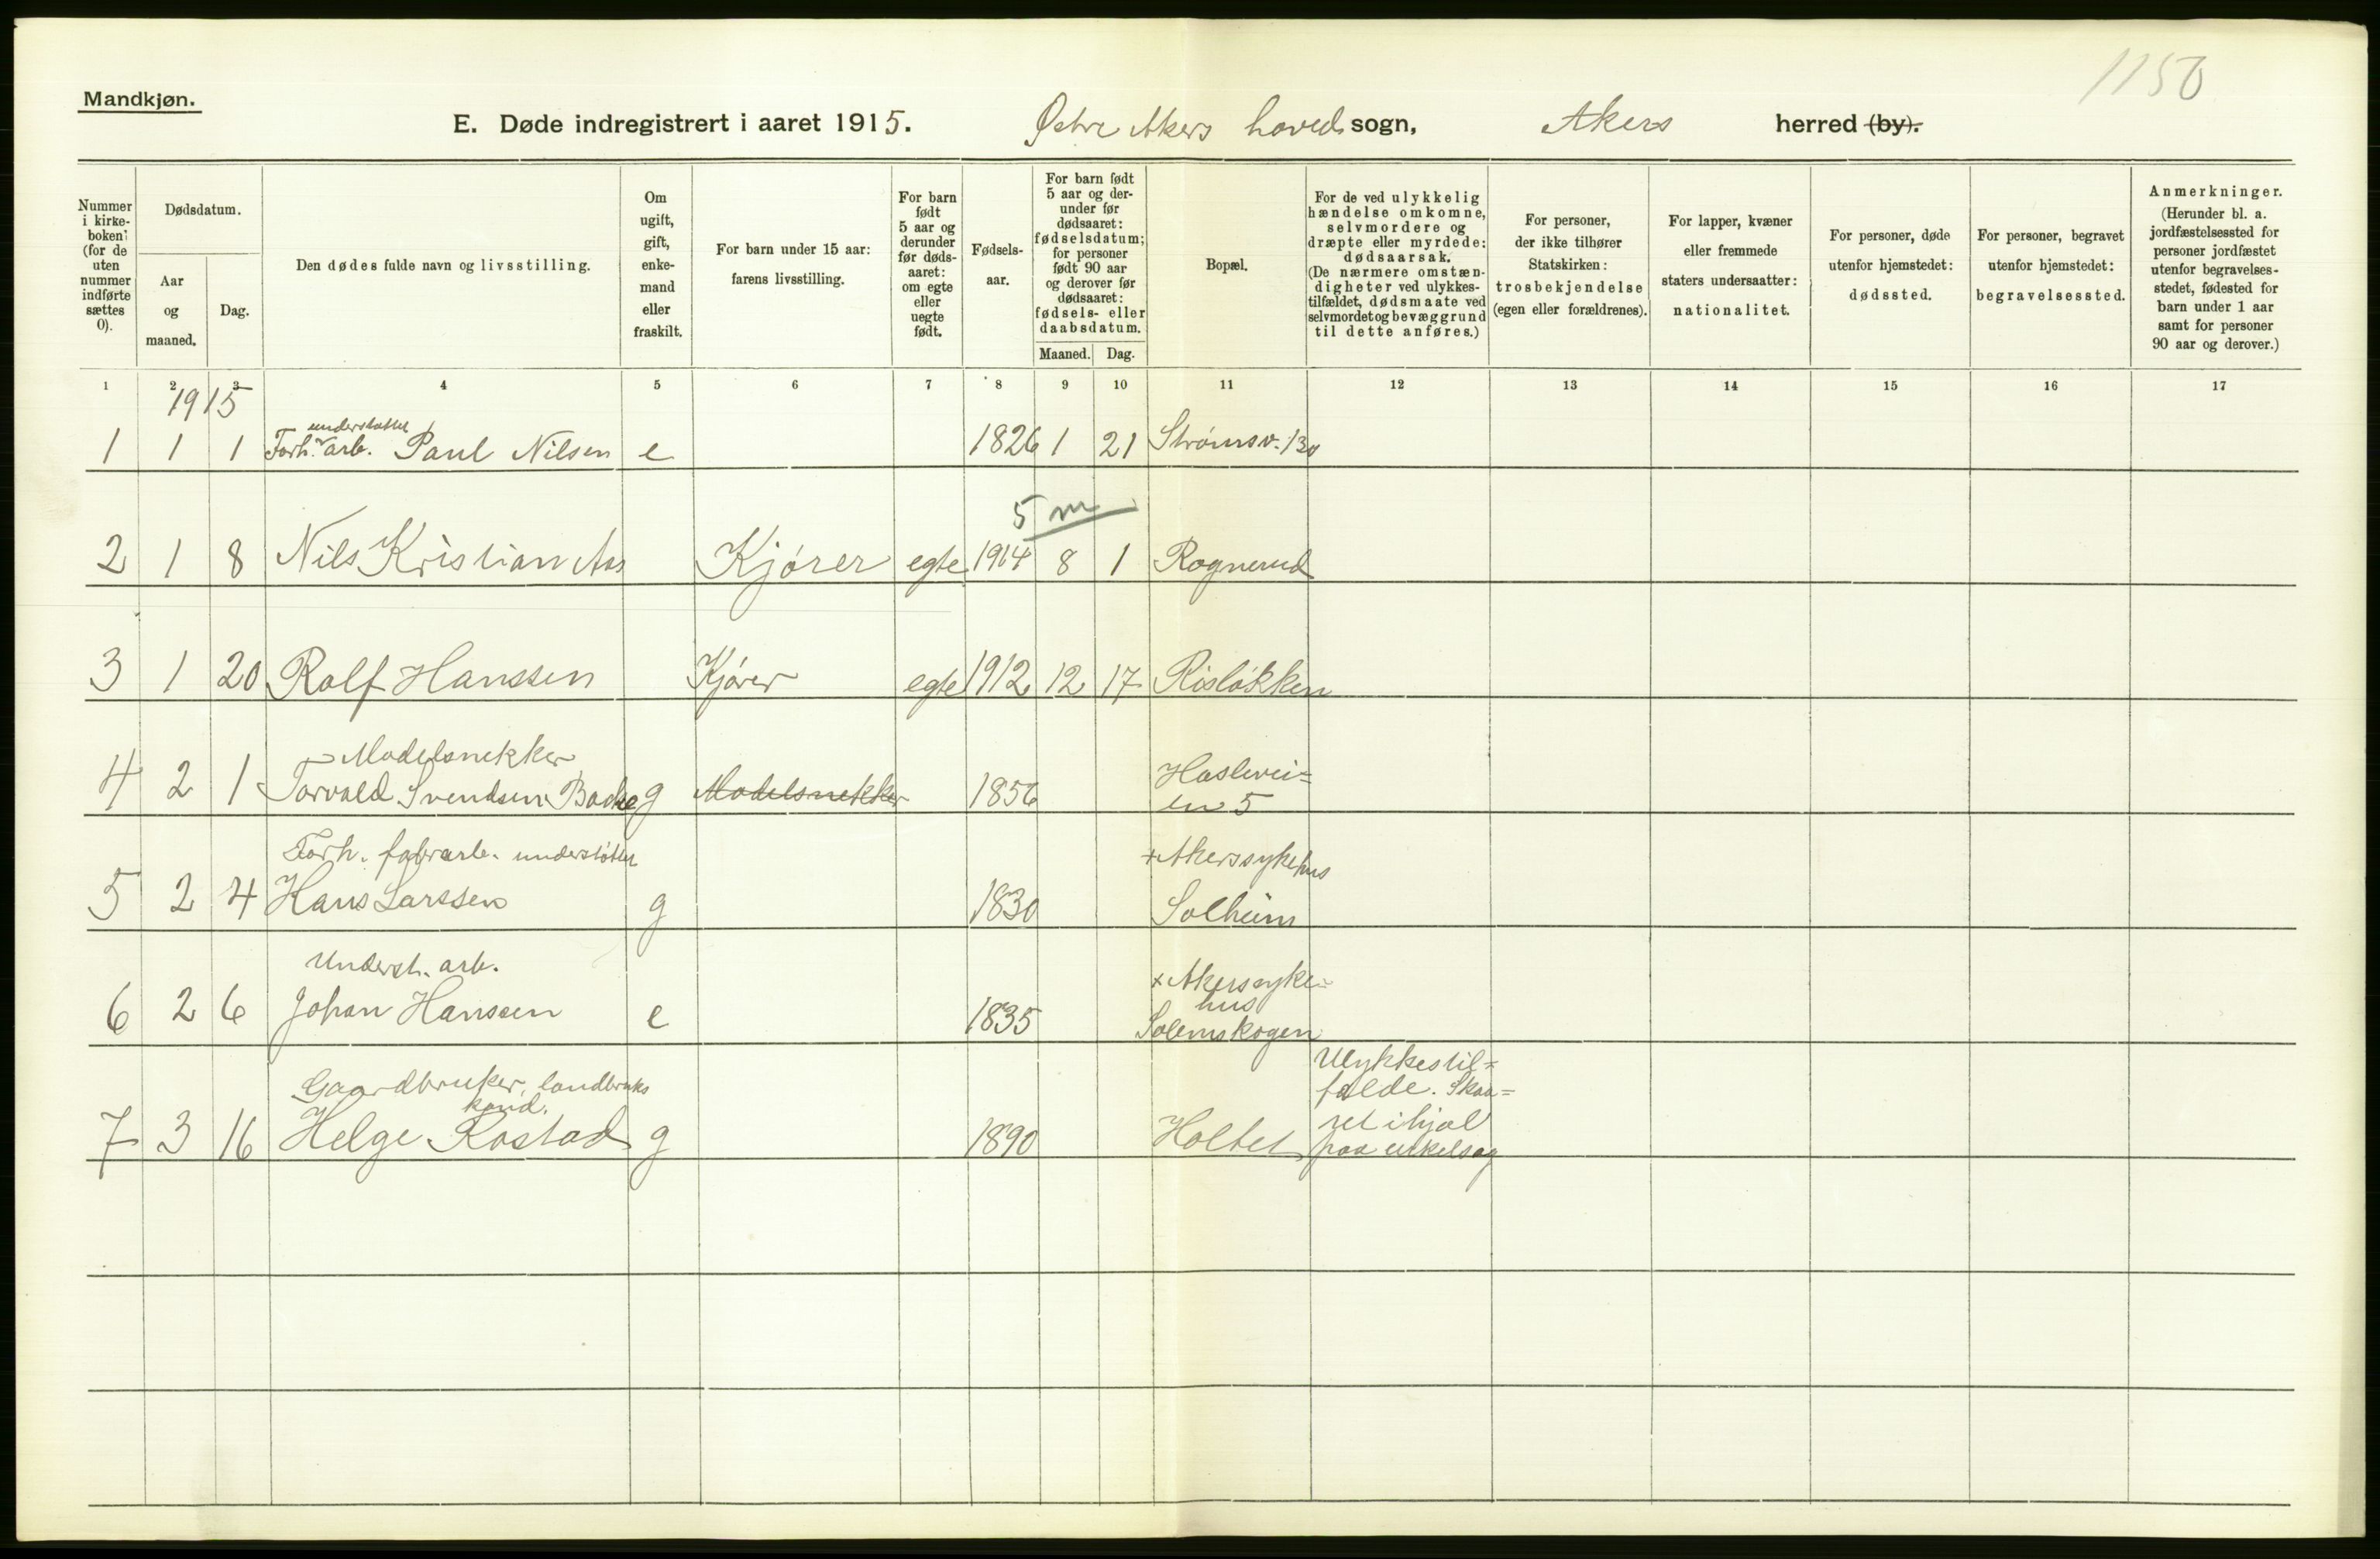 1150
Mandkjøn.
E. Døde indregistrert i aaret 1915. Østre Akers hoved sogn, Akers herred (by).
Nummer i kirke-boken: (for de uten nummer indførte sættes 0).
Dødsdatum.
Aar og maaned.
Dag.
Den dødes fulde navn og livsstilling.
Om ugift, gift, enke-mand eller fraskilt.
For barn under 15 aar: farens livsstilling.
For barn født 5 aar og derunder før døds-aaret: om egte eller uegte født.
Fødsels-aar.
For barn født 5 aar og der-under før dødsaaret: fødselsdatum; for personer født 90 aar og derover før dødsaaret: fødsels- eller daabsdatum.
Maaned.
Dag.
Bopæl.
For de ved ulykkelig hændelse omkomne, selvmordere og dræpte eller myrdede: dødsaarsak. (De nærmere omstæn-digheter ved ulykkes-tilfældet, dødsmaate ved selvmordet og bevæggrund til dette anføres.)
For personer, der ikke tilhører Statskirken: trosbekjendelse (egen eller forældrenes).
For lapper, kvæner eller fremmede staters undersaatter: nationalitet.
For personer, døde utenfor hjemstedet: dødssted.
For personer, begravet utenfor hjemstedet: begravelsessted.
Anmerkninger. (Herunder bl. a. jordfæstelsessted for personer jordfæstet utenfor begravelses-stedet, fødested for barn under 1 aar samt for personer 90 aar og derover.)
1 2 3 4 5 6 7 8 9 10 11 12 13 14 15 16 17
1915
understøttet
1 1 1 Forh. arb. Paul Nilsen e 1826 1 21 Strømsv. 130
5 m
2 1 8 Nils Kristian Aas Kjører egte 1914 8 1 Rognerud
3 1 20 Rolf Hanssen Kjører egte 1912 12 17 Risløkken
Modelsnekker Haslevei=
4 2 1 Torvald Svendsen Backe g Modelsnekker 1856 en 5
Forh. fabrarb. understøttet + Akerssykehus
5 2 4 Hans Larssen g 1830 Solheim
Underst. arb. + Akerssyke=
hus
6 2 6 Johan Hanssen e 1835 Solemskogen
Ulykkestil=
Gaardbruker, landbruks fælde. Skaa=
kand. ret ihjel
7 3 16 Helge Rostad g 1890 Holtet paa cirkelsag